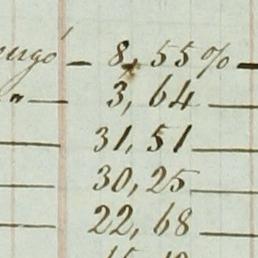 — 8,55%—
"— 3,64—
31,51—
— 30,25—
— 22,68—